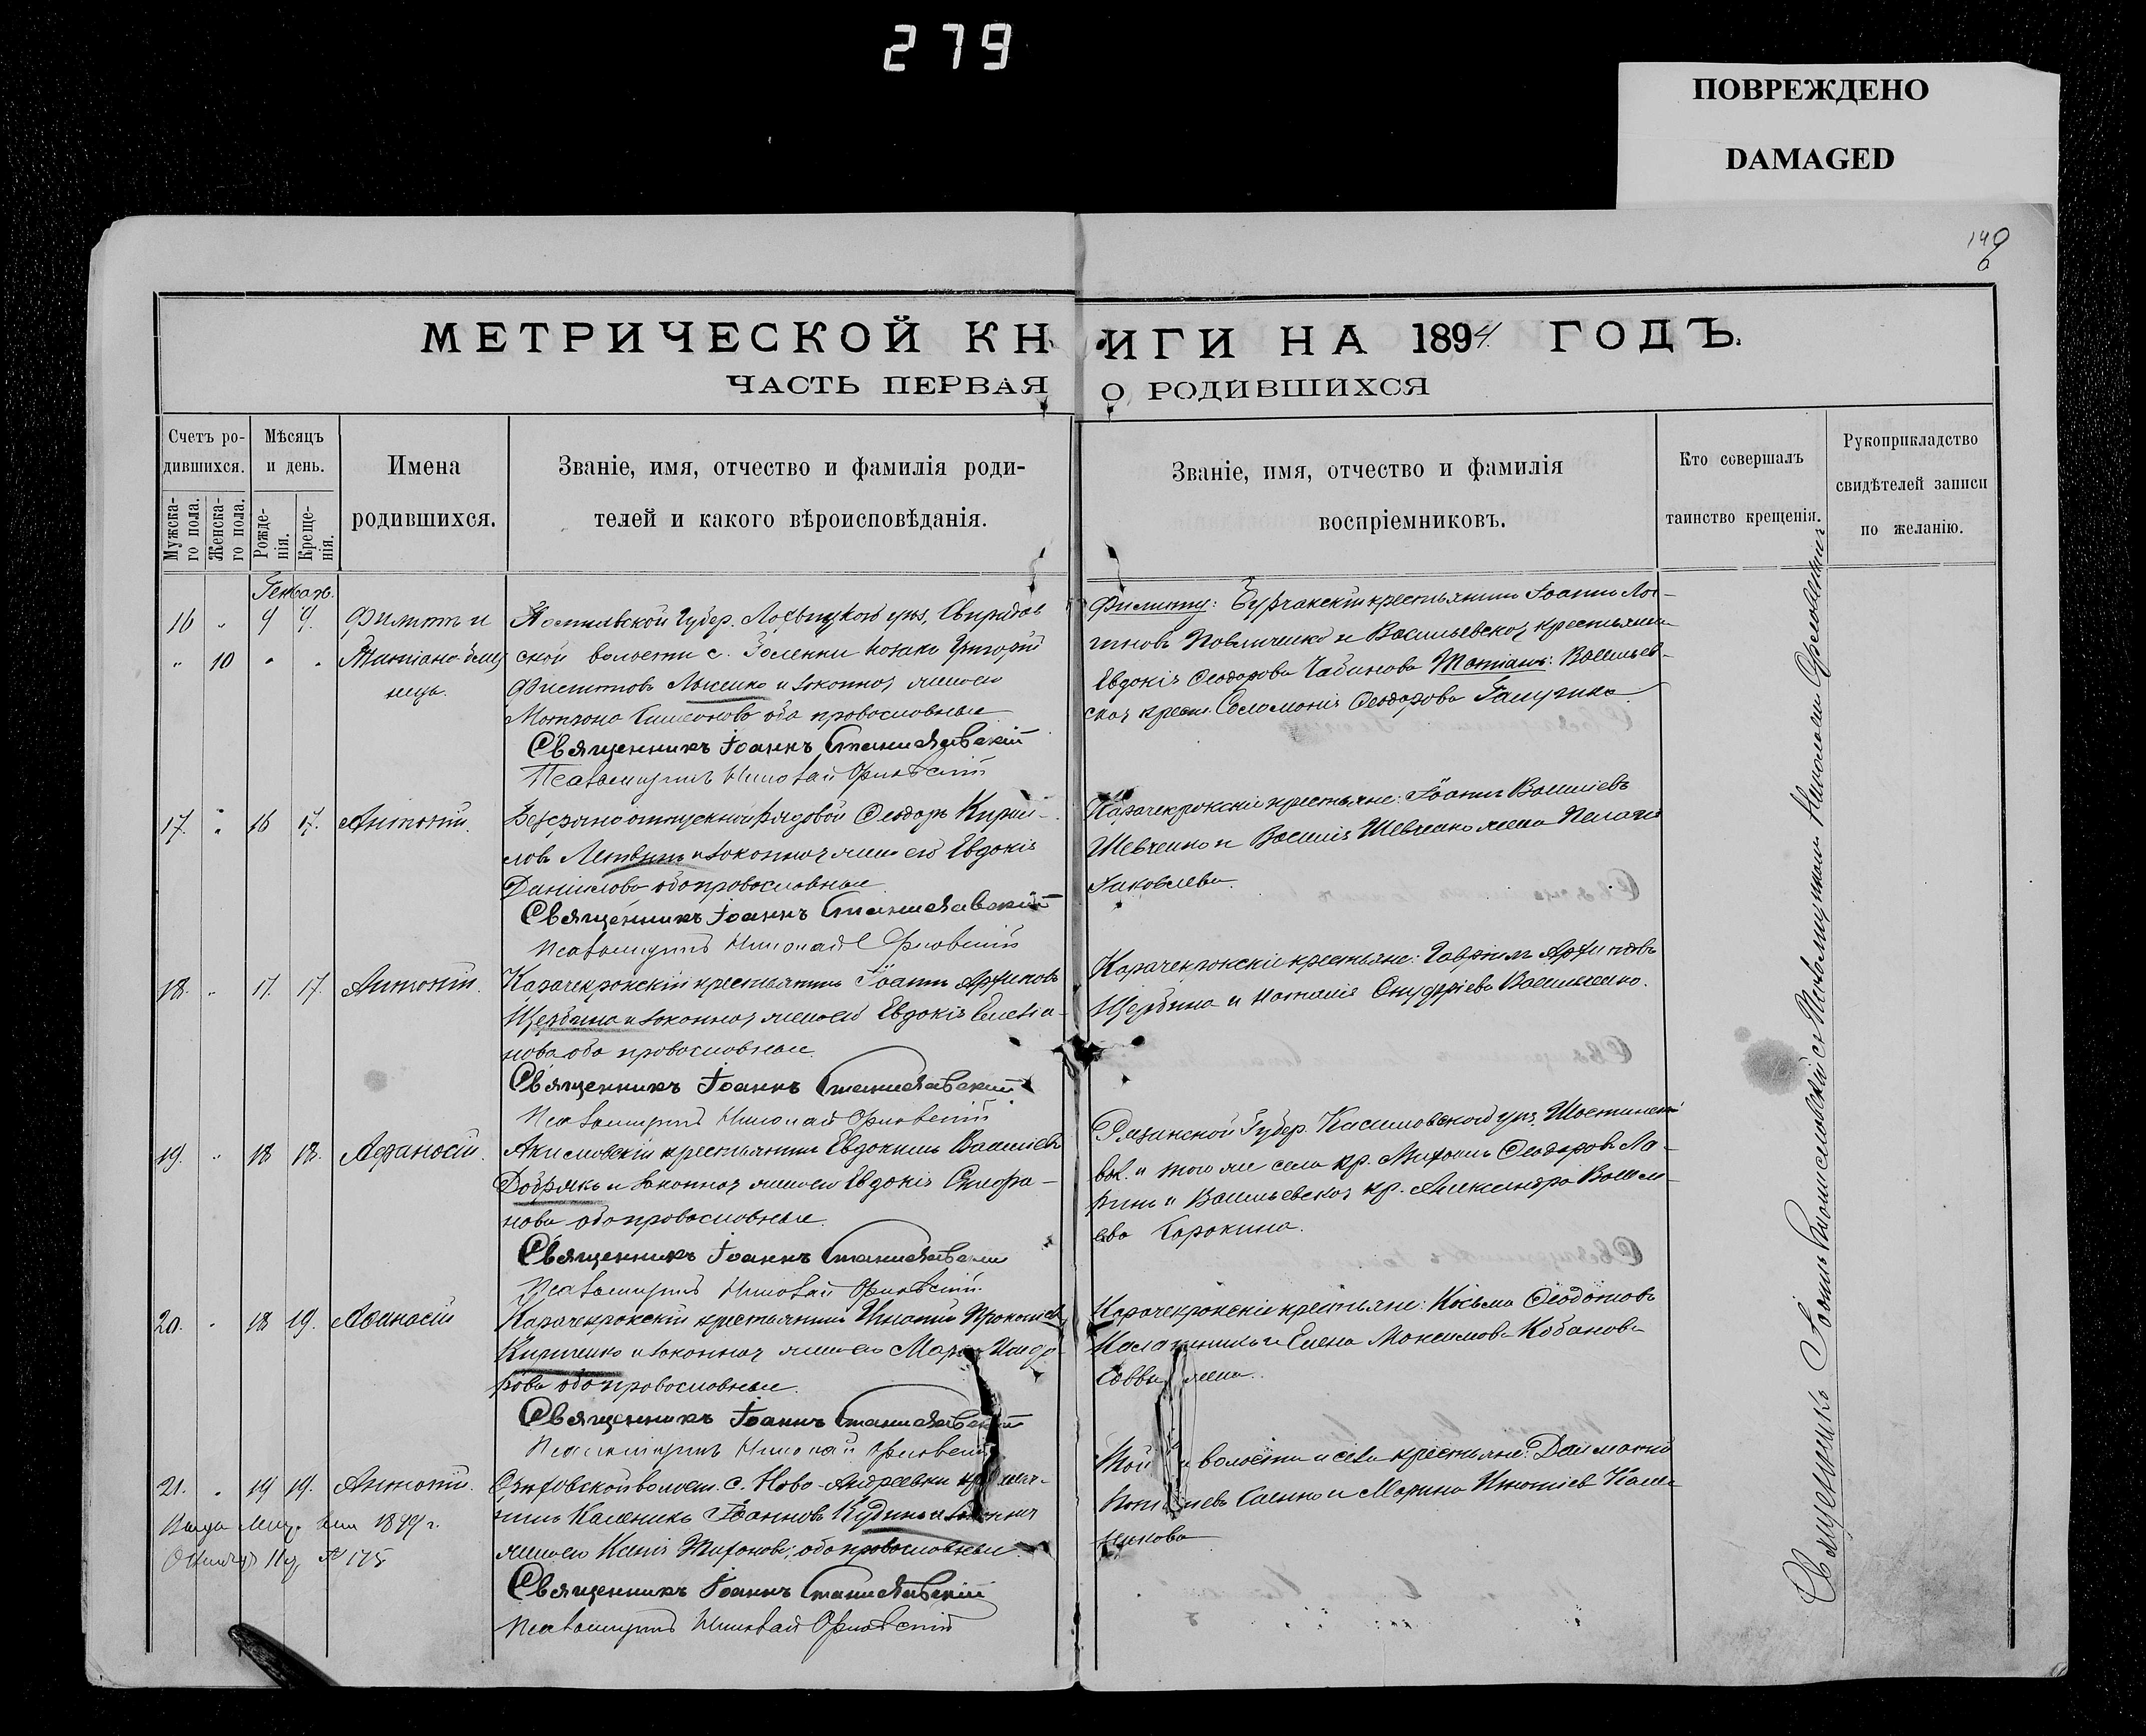 279
ПОВРЕЖДЕНО
DAMAGED
МЕТРИЧЕСКОЙ КНИГИ НА 1894 ГОДЪ.
ЧАСТЬ ПЕРВАЯ О РОДИВШИХСЯ
Счетъ родившихся.
Мужска-
го пола.
Женска-
го пола.
Мѣсяцъ
и день.
Рожде-
нія.
Креще-
нія.
Имена
родившихся.
Званіе, имя, отчество и фамилія роди-
телей и какого вѣроисповѣданія.
Званіе, имя, отчество и фамилія
воспріемниковъ.
Кто совершалъ
таинство крещенія.
Рукоприкладство
свидѣтелей записи
по желанію.
16 " 9 9. Филиппъ и
" 10 " " Татіана близ
нецы.
Полтавской Губер. Лохвицкого уѣз, Свиридов
ской волости с. Поленки козакъ Григорій
Филиповъ Лысенко и законная жена его
Матрона Симеонова оба православные
Священникъ Іоаннъ Станиславскій
Псаломщикъ Николай Орловскій
Филиппу: Бурчакскій крестьянинъ Іоаннъ Лог-
гиновъ Павличенко и Васильевская крестьянка
Евдокія Ѳеодорова Чабанова Татіанѣ: Васильев-
ская крест. Соломонія Ѳеодорова
17. " 16 17. Антоній.
рядовой Ѳеодоръ Кирил-
ловъ Литвинъ и законная жена его Евдокія
Даніилова оба православные
Священникъ Іоаннъ Станиславскій
Псаломщикъ Николай Орловскій
Карачекракскіе крестьяне: Іоаннъ Васильевъ
Шевченко и Василія Шевченко жена Пелагія
Іаковлева.
18. " 17. 17. Антоній.
Карачекракскій крестьянинъ Іоаннъ Архиповъ
Щербина и законная жена его Евдокія
нова оба православные.
Священникъ Іоаннъ Станиславскій
Псаломщикъ Николай Орловскій
Карачекракскіе крестьяне: Гавріилъ Архиповъ
Щербина и Наталія Онуфріева Василенко.
19. " 18 18. Аѳанасій.
Акимовскій крестьянинъ Евдокимъ Васильевъ
Добрякъ и законная жена его Евдокія Стефа-
нова оба православные.
Священникъ Іоаннъ Станиславскій
Псаломщикъ Николай Орловскій
Рязанской Губер. Касимовского уѣз.
вол. и того же села кр. Ѳеодоровъ Ла-
ринъ и Васильевская кр. Александра Василь-
ева Сорокина.
20. " 18 19. Аѳанасій
Карачекракскій крестьянинъ Игнатій Прокопіевъ
Кириченко и законная жена его Исидо-
рова оба православные.
Священникъ Іоаннъ Станиславскій
Псаломщикъ Николай Орловскій
Карачекракскіе крестьяне: Косьма Ѳеодотовъ
и Елена Максимова Кобанова
Саввы жена.
21. " 19 19. Антоній.
волост. с. Ново-Андреевки
нинъ Каленикъ Іоанновъ Кудинъ и законная
жена его Ксенія оба православные
Священникъ Іоаннъ Станиславскій
Псаломщикъ Николай Орловскій
волости и села крестьяне:
Саенко и Марина Игнатіева
никова
№ 175
Священникъ Іоаннъ Станиславскій съ Псаломщикомъ Николаемъ Орловскимъ